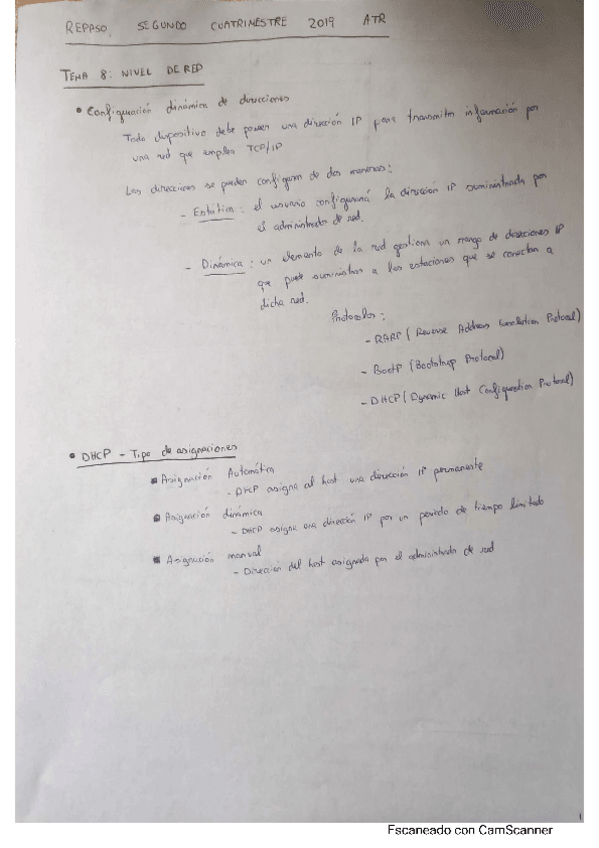 REPASO SEGUNDO CUATRIMESTRE 2019 ATR
TEMA 8: NIVEL DE RED
• Configuración dinámica de direcciones
Todo dispositivo debe poseer una dirección IP para transmitir información por
una red que emplea TCP/IP
Las direcciones se pueden configurar de dos maneras:
- Estática: el usuario configurará la dirección IP suministrada por
el administrador de red.
- Dinámica: un elemento de la red gestiona un rango de direcciones IP
que puede suministrar a las estaciones que se conectan a
dicha red.
Protocolos:
- RARP (Reverse Address Protocol)
- BootP (Bootstrap Protocol)
- DHCP (Dynamic Host Configuration Protocol)
• DHCP - Tipo de asignaciones
▪ Asignación Automática
- DHCP asigna al host una dirección IP permanente
▪ Asignación dinámica
- DHCP asigna una dirección IP por un periodo de tiempo limitado
▪ Asignación manual
- Dirección del host asignada por el administrador de red
1
Escaneado con CamScanner